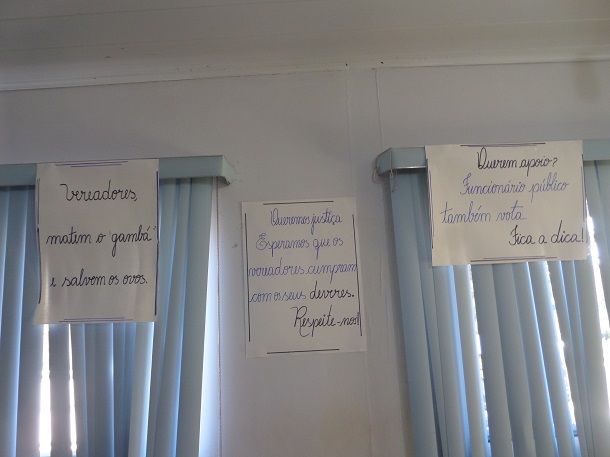 Vereadores,
matem o "gambá"
e salvem os ovos.
Queremos justiça
Esperamos que os
vereadores cumpram
com os seus deveres.
Respeite-nos!
Querem apoio?
Funcionário público
também vota
Fica a dica!